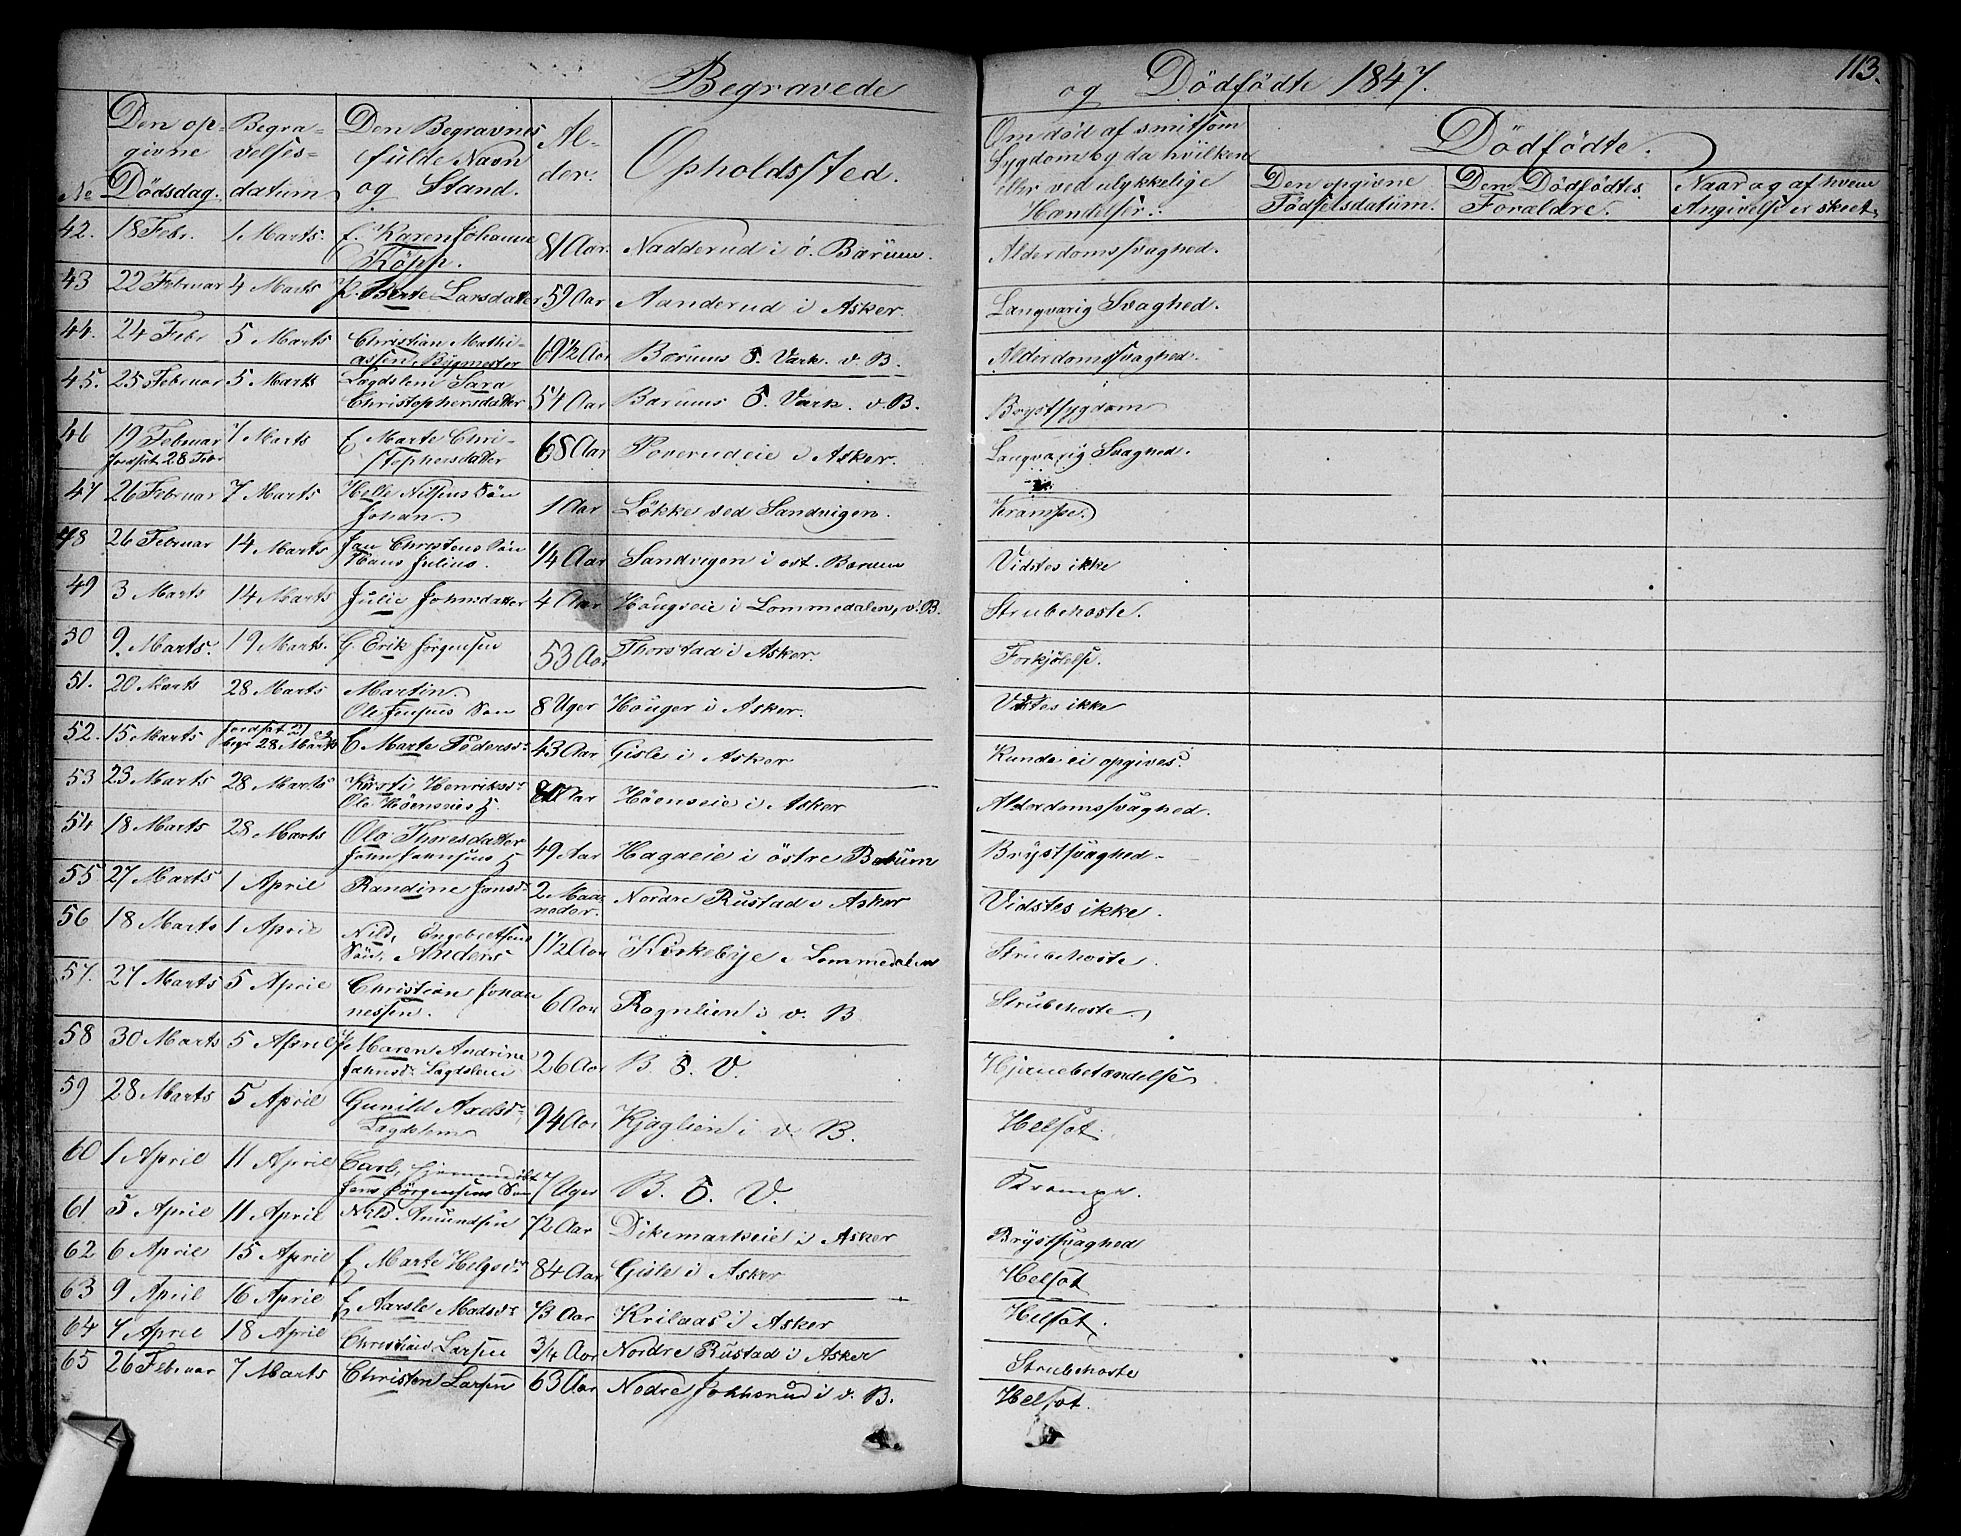 Begravede og Dödfödte 1847. 113.
No | Den opgivne Dödsdag. | Begravelsesdatum | Den Begravnes fulde Navn og Stand. | Alder. | Opholdssted. | Om död af smitsom Sygdom og da hvilken eller ved ulykkelige Hændelser. | Dödfödte. Den opgivne Födselsdatum. | Den Dödfödtes Forældre. | Naar og af hvem Angivelse er skeet.
42. 18 Febr. 1 Marts. f. Karen Johanne Röpp. 81 Aar. Nadderud i ö. Bærum. Alderdomssvaghed.
43 22 Februar 4 Marts Berte Larsdatter 59 Aar Aanderud i Asker. Langvarig Svaghed.
44. 24 Febr 5 Marts Christian Mathiassen, Bygmester 69 1/2 Aar Bærums O. Værk. v. B. Alderdomssvaghed.
45. 25 Februar 5 Marts Lægdslem Sara Christophersdatter 54 Aar Bærums O. Værk. v. B. Brystsygdom
46 19 Februar jordsat 28 Febr 7 Marts f Marte Christophersdatter 68 Aar Poverudeie i Asker. Langvarig Svaghed.
47 26 Februar 7 Marts Helle Nilsens Sön Johan. 1 Aar Lökke ved Sandvigen. Krampe.
48 26 Februar 14 Marts Jan Christens Sön Hans Julius. 1/4 Aar Sandvigen i öst. Bærum Vidstes ikke
49 3 Marts 14 Marts Julie Johnsdatter 4 Aar Haugseie i Lommedalen, v. B. Strubehoste.
50 9. Marts. 19 Marts. G Erik Jörgensen 53 Aar Thorstad i Asker. Forkjölelse.
51. 20 Marts 28 Marts Martin. Ole Jensens Sön 8 Uger Houger i Asker. Vidstes ikke
52. 15 Marts jordsat 21 begr 28 Marts Marte Pedersdr 43 Aar Gisle i Asker Kunde ei opgives.
53 23 Marts 28 Marts Kirsti Henriksdr Ole Höensnes E. Aar Höenseie i Asker Alderdomssvaghed.
54 18 Marts 28 Marts Ola Thoresdatter John Johnsens E 49 Aar Hagaeie i östre Bærum Brystsvaghed.
55 27 Marts 1 April Randine Jonsdr 2 Maaneder. Nordre Rustad i Asker Vidstes ikke.
56 18 Marts 1 April Nils, Engebretsens Sön, Anders 1 1/2 Aar Kirkebye i Lommedalen Strubehoste.
57. 27 Marts 5 April Christian Johannessen. 6 Aar Rognlien i v. B. Strubehoste.
58 30 Marts 5 April Maren Andrine Jahnsdr Lægdslem 26 Aar B. O. V. Hjernebetændelse
59 28 Marts 5 April Gunild Axelsdr. Lægdslem 94 Aar Kjaglien i v. B. Helsot.
60 1 April 11 April Carl, Jens Jörgensens Sön 7 Uger B. O. V. Krampe.
61. 5 April 11 April Nils Amundsen 72 Aar Dikemarkeie i Asker Brystsvaghed
62 6 April 15 April f Marte Helgesdr 84 Aar Gisle i Asker Helsot
63 9 April 16 April f Aarsle Madsdr 73 Aar Krilaas i Asker Helsot.
64 7 April 18 April Christian Larsen 3/4 Aar Nordre Rustad i Asker Strubehoste
65 26 Februar 7 Marts Christen Larsen 63 Aar Nodre Jokhsrud i v. B. Helsot.